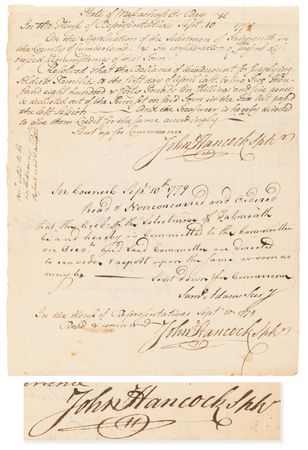 State of Massachusetts Bay
In the House of Representatives Sept. 10. 1779
On the Application of the Selectmen of Falmouth in
the County of Cumberland & in Consideration of the
distressed Circumstances of that Town
Resolved That the Balance of the Account for supplying
Soldiers
hundred &
be deducted out of the Sum set on said Town in the Tax Act
the last Session And the Treasurer is hereby directed
to give them Credit for the same accordingly
Sent up for Concurrence
John Hancock Spkr
In Council Sept. 10th 1779
Read & Nonconcurred and Ordered
that the of the Selectmen of Falmouth
be and hereby is Committed to the Committee
on and said Committee are directed
to consider & report upon the same as soon as
may be
Sent down for Concurrence
Saml Adams Secy
In the House of Representatives Sept 10 1779
Read & concurred
John Hancock Spkr
John Hancock Spkr